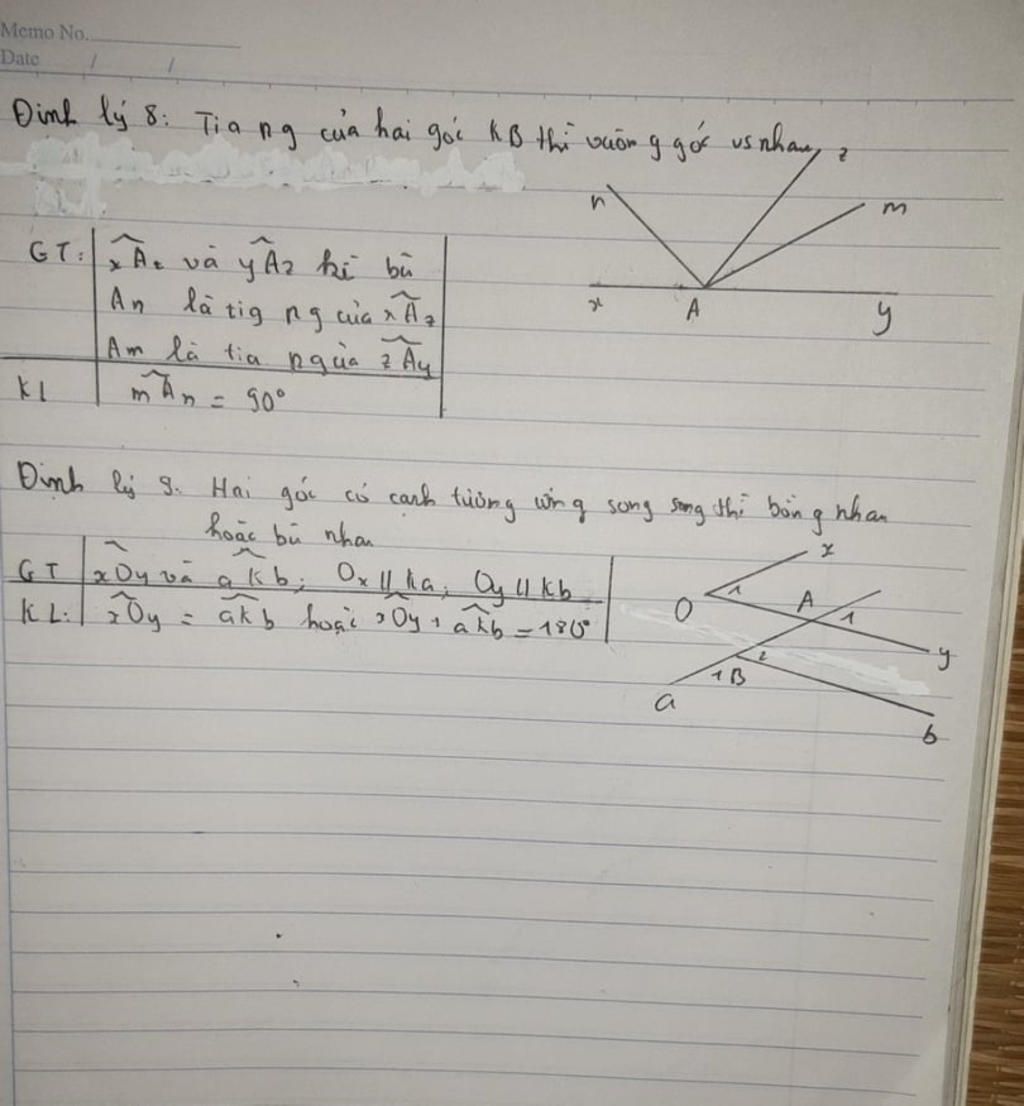 Memo No.
Date / /
Định lý 8: Tia ng của hai góc KB thì vuông góc vs nhau
z
n
m
x
A
y
GT: xAz và yAz kề bù
An là tia ng của xAz
Am là tia ng của zAy
KL mAn = 90°
Định lý 9. Hai góc có cạnh tương ứng song song thì bằng nhau
hoặc bù nhau
GT xOy và aKb; Ox // Ka; Oy // Kb
KL: xOy = aKb hoặc xOy + aKb = 180°
x
O 1
A 1
y
2
1 B
a
b